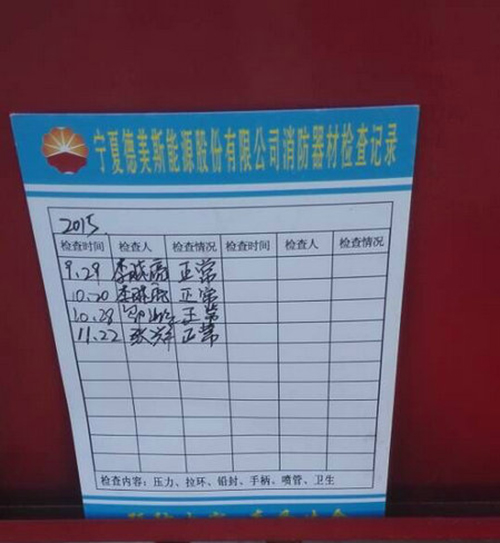 宁夏德美斯能源股份有限公司消防器材检查记录
2015.
检查时间 检查人 检查情况 检查时间 检查人 检查情况
9.29 李晓康 正常
10.20 李晓康 正常
10.28 正常
11.22 张祥 正常
检查内容：压力、拉环、铅封、手柄、喷管、卫生